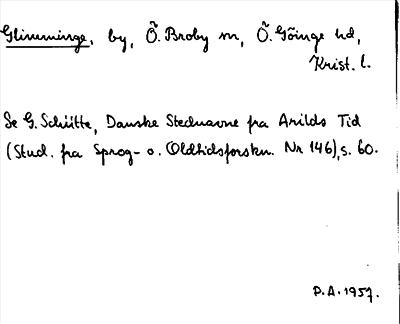 Glimminge, by, Ö. Broby sn, Ö. Göinge hd,
Krist. l.
Se G. Schütte, Danske Stednavne fra Arilds Tid
(Stud. fra Sprog- o. Oldtidsforskn. Nr 146), s. 60.
P.A. 1957.